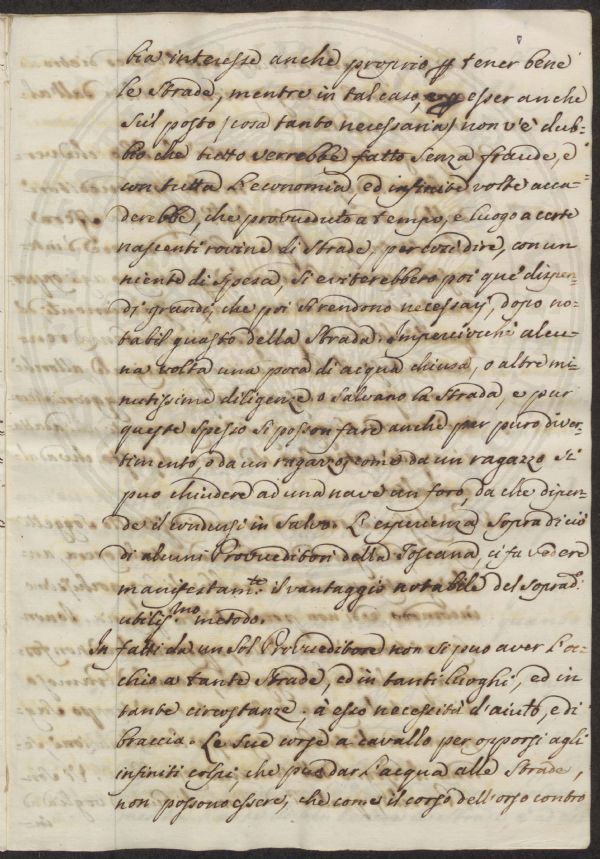 bia interesse anche proprio p tener bene
le Strade, mentre in tal caso, esser anche
sul posto (cosa tanto necessaria) non v'è dub-
bio che tutto verrebbe fatto senza fraude, e
con tutta l'economia, ed infinite volte acca-
derebbe, che provveduto a tempo, e luogo a certe
nascenti rovine di Strade, per così dire, con un
niente di spesa, si eviterebbero poi que' dispen-
dj grandi, che poi si rendono necessarj, dopo no-
tabil guasto della Strada. Imperciocchè alcu-
na volta una poca di acqua chiusa, o altre mi-
nutissime diligenze, o salvano la Strada, e pur
queste spesso si posson fare anche per puro diver-
timento, o da un ragazzo, come da un ragazzo si
può chiudere ad una nave un foro, da che dipen-
de il condursi in salvo. L'esperienza sopra di ciò
di alcuni Provveditori della Toscana, ci fa vedere
manifestam.te il vantaggio notabile del soprad.o
utiliss.mo metodo.
In fatti da un sol Provveditore non si può aver l'oc-
chio a tante Strade, ed in tanti luoghi, ed in
tante circostanze; à esso necessità d'aiuto, e di
braccia. Le sue corse a cavallo per opporsi agli
infiniti colpi, che può dar l'acqua alle Strade,
non possono essere, che come il corso dell'orso contro